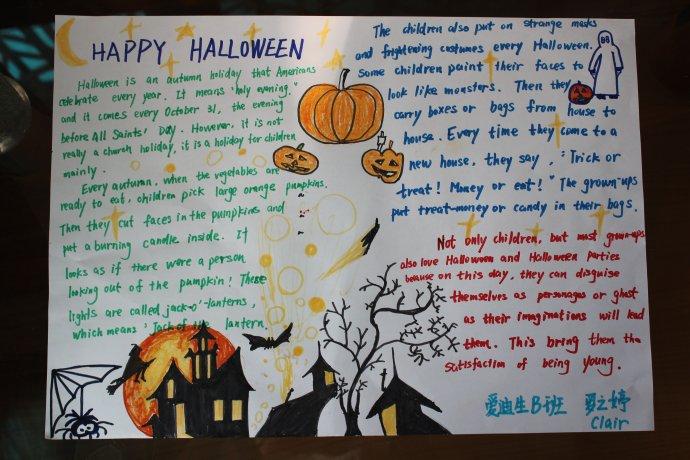 HAPPY HALLOWEEN
Halloween is an autumn holiday that Americans
celebrate every year. It means "holy evening."
and it comes every October 31, the evening
before All Saints' Day. However, it is not
really a church holiday, it is a holiday for children
mainly.
Every autumn, when the vegetables are
ready to eat, children pick large orange pumpkins.
Then they cut faces in the pumpkins and
put a burning candle inside. It
looks as if there were a person
looking out of the pumpkin! These
lights are called jack-o'-lanterns,
which means "Jack of the lantern.
The children also put on strange masks
and frightening costumes every Halloween.
Some children paint their faces to
look like monsters. Then they
carry boxes or bags from house to
house. Every time they come to a
new house, they say, "Trick or
treat! Money or eat!" The grown-ups
put treat-money or candy in their bags.
Not only children, but most grown-ups
also love Halloween and Halloween parties
because on this day, they can disguise
themselves as personages or ghost
as their imaginations will lead
them. This bring them the
satisfaction of being young.
爱迪生B班 夏之婷
Clair